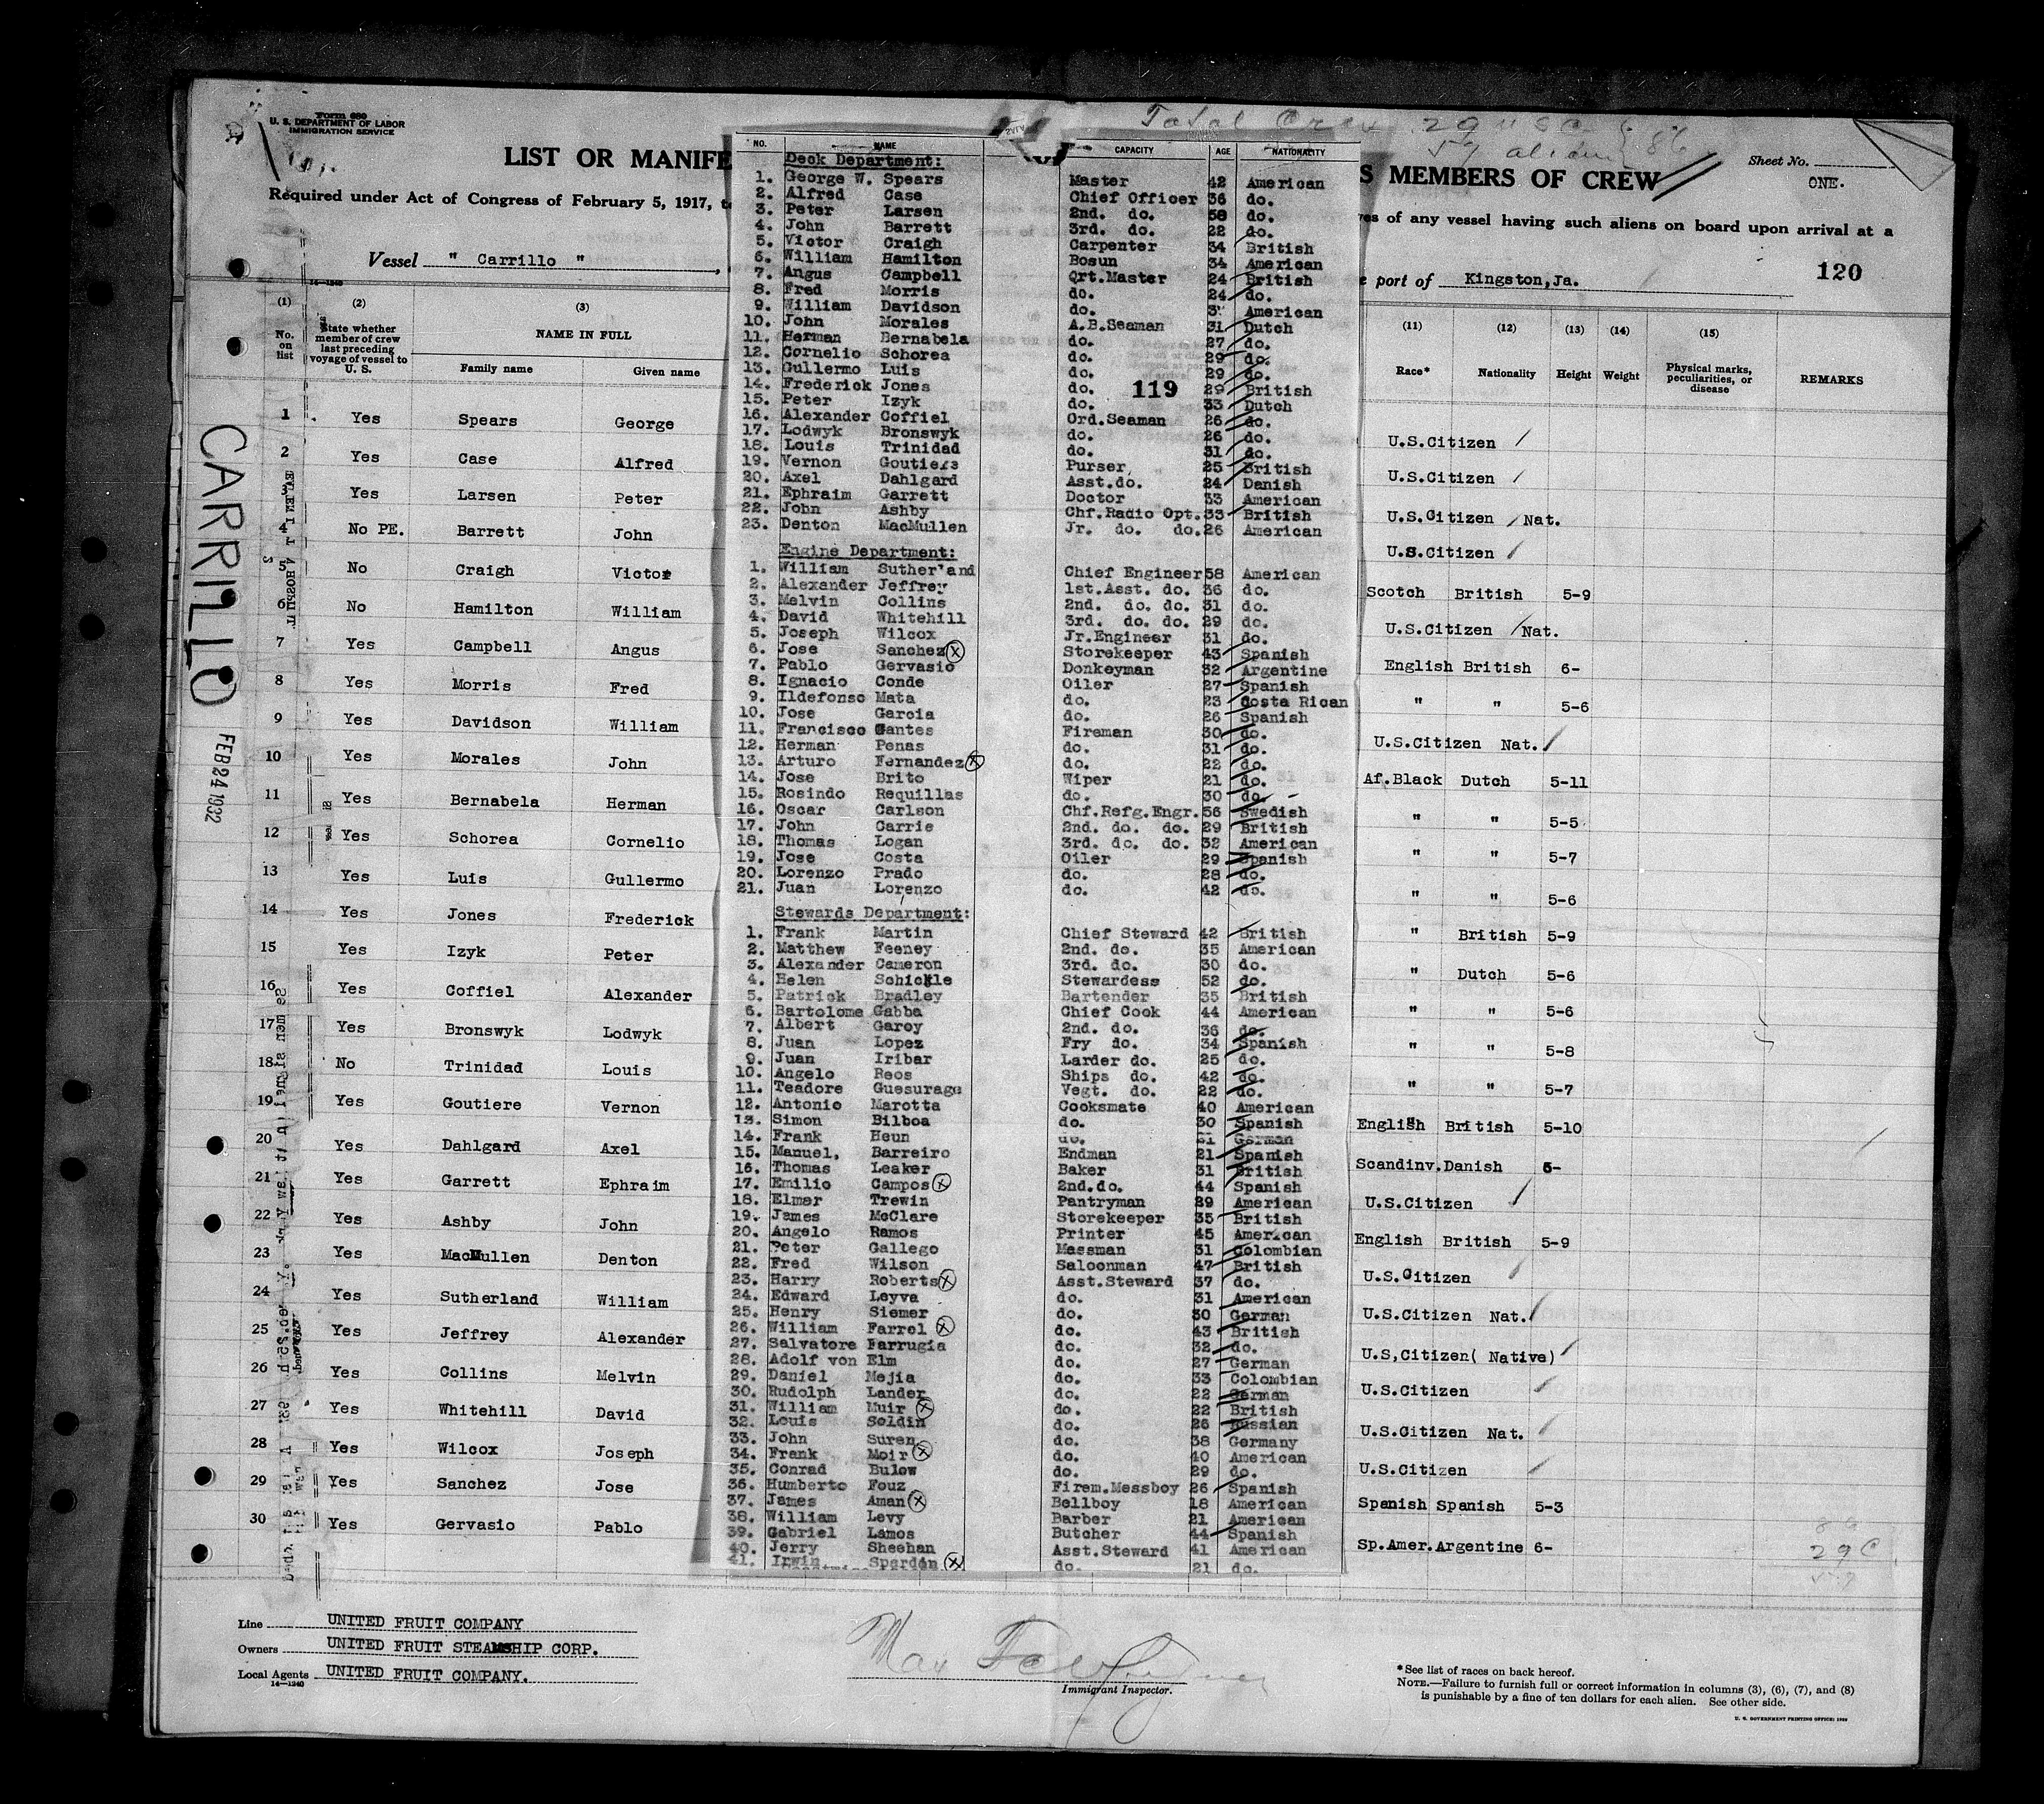 Form 680
U. S. DEPARTMENT OF LABOR
IMMIGRATION SERVICE
Total Crew 29 U S C
57 alien 86
LIST OR MANIFE
S MEMBERS OF CREW
Sheet No.
ONE.
Required under Act of Congress of February 5, 1917, t
es of any vessel having such aliens on board upon arrival at a
Vessel " Carrillo "
e port of Kingston,Ja.
120
14—1240
(1) (2) (3)
No. on list
State whether member of crew last preceding voyage of vessel to U. S.
NAME IN FULL
Family name Given name
(11) (12) (13) (14) (15)
Race* Nationality Height Weight Physical marks, peculiarities, or disease REMARKS
1 Yes Spears George U.S.Citizen
2 Yes Case Alfred U.S.Citizen
Yes Larsen Peter U.S.Citizen Nat.
4 No PE. Barrett John U.S.Citizen
5 No Craigh Victor Scotch British 5-9
6 No Hamilton William U.S.Citizen Nat.
7 Yes Campbell Angus English British 6-
8 Yes Morris Fred " " 5-6
9 Yes Davidson William U.S.Citizen Nat.
10 Yes Morales John Af.Black Dutch 5-11
11 Yes Bernabela Herman " " 5-5
12 Yes Schorea Cornelio " " 5-7
13 Yes Luis Gullermo " " 5-6
14 Yes Jones Frederick " British 5-9
15 Yes Izyk Peter " Dutch 5-6
16 Yes Coffiel Alexander " " 5-6
17 Yes Bronswyk Lodwyk " " 5-8
18 No Trinidad Louis " " 5-7
19 Yes Goutiere Vernon English British 5-10
20 Yes Dahlgard Axel Scandinv.Danish 6-
21 Yes Garrett Ephraim U.S.Citizen
22 Yes Ashby John English British 5-9
23 Yes MacMullen Denton U.S.Citizen
24 Yes Sutherland William U.S.Citizen Nat.
25 Yes Jeffrey Alexander U.S,Citizen( Native)
26 Yes Collins Melvin U.S.Citizen
27 Yes Whitehill David U.S.Citizen Nat.
28 Yes Wilcox Joseph U.S.Citizen
29 Yes Sanchez Jose Spanish Spanish 5-3
30 Yes Gervasio Pablo Sp.Amer.Argentine 6-
CARRILLO
FEB 24 1932
NO. NAME CAPACITY AGE NATIONALITY
Deck Department:
1. George W. Spears Master 42 American
2. Alfred Case Chief Officer 36 do.
3. Peter Larsen 2nd. do. 58 do.
4. John Barrett 3rd. do. 22 do.
5. Victor Craigh Carpenter 34 British
6. William Hamilton Bosun 34 American
7. Angus Campbell Qrt.Master 24 British
8. Fred Morris do. 24 do.
9. William Davidson do. American
10. John Morales A.B.Seaman 31 Dutch
11. Herman Bernabela do. 27 do.
12. Cornelio Schorea do. 29 do.
13. Gullermo Luis do. 29 do.
14. Frederick Jones do. 29 British
119
15. Peter Izyk do. 33 Dutch
16. Alexander Coffiel Ord.Seaman 26 do.
17. Lodwyk Bronswyk do. 26 do.
18. Louis Trinidad do. 31 do.
19. Vernon Goutiere Purser, 25 British
20. Axel Dahlgard Asst.do. 24 Danish
21. Ephraim Garrett Doctor 33 American
22. John Ashby Chf.Radio Opt. 33 British
23. Denton MacMullen Jr. do. do. 26 American
Engine Department:
1. William Sutherland Chief Engineer 58 American
2. Alexander Jeffrey 1st.Asst. do. 36 do.
3. Melvin Collins 2nd. do. do. 31 do.
4. David Whitehill 3rd. do. do. 29 do.
5. Joseph Wilcox Jr.Engineer 31 do.
6. Jose Sanchez Storekeeper 43 Spanish
7. Pablo Gervasio Donkeyman 32 Argentine
8. Ignacio Conde Oiler 27 Spanish
9. Ildefonso Mata do. 23 Costa Rican
10. Jose Garcia do. 26 Spanish
11. Francisco Gantes Fireman 30 do.
12. Herman Penas do. 31 do.
13. Arturo Fernandez do. 22 do.
14. Jose Brito Wiper 21 do.
15. Rosindo Requillas do. 30 do.
16. Oscar Carlson Chf.Refg.Engr. 56 Swedish
17. John Carrie 2nd. do. do. 29 British
18. Thomas Logan 3rd. do. do. 32 American
19. Jose Costa Oiler 29 Spanish
20. Lorenzo Prado do. 28 do.
21. Juan Lorenzo do. 42 do.
Stewards Department:
1. Frank Martin Chief Steward 42 British
2. Matthew Feeney 2nd. do. 35 American
3. Alexander Cameron 3rd. do. 30 do.
4. Helen Schickle Stewardess 52 do.
5. Patrick Bradley Bartender 35 British
6. Bartolome Gabba Chief Cook 44 American
7. Albert Garoy 2nd. do. 36 do.
8. Juan Lopez Fry do. 34 Spanish
9. Juan Iribar Larder do. 25 do.
10. Angelo Reos Ships do. 42 do.
11. Teadore Guesurage Vegt. do. 22 do.
12. Antonio Marotta Cooksmate 40 American
13. Simon Bilboa do. 30 Spanish
14. Frank Heun do. 21 German
15. Manuel, Barreiro Endman 21 Spanish
16. Thomas Leaker Baker 31 British
17. Emilio Campos 2nd.do. 44 Spanish
18. Elmer Trewin Pantryman 29 American
19. James McClare Storekeeper 35 British
20. Angelo Ramos Printer 45 American
21. Peter Gallego Messman 31 Colombian
22. Fred Wilson Saloonman 47 British
23. Harry Roberts Asst.Steward 37 do.
24. Edward Leyva do. 31 American
25. Henry Siemer do. 30 German
26. William Farrel do. 43 British
27. Salvatore Farrugia do. 32 do.
28. Adolf von Elm do. 27 German
29. Daniel Mejia do. 33 Colombian
30. Rudolph Lander do. 22 German
31. William Muir do. 22 British
32. Louis Soldin do. 26 Russian
33. John Suren do. 38 Germany
34. Frank Moir do. 40 American
35. Conrad Bulow do. 29 do.
36. Humberto Fouz Firem.Messboy 26 Spanish
37. James Aman Bellboy 18 American
38. William Levy Barber 21 American
39. Gabriel Lamos Butcher 44 Spanish
40. Jerry Sheehan Asst.Steward 41 American
41. Irwin Spardon do. 21 do.
86
29 C
57
Line UNITED FRUIT COMPANY
Owners UNITED FRUIT STEAMSHIP CORP.
Local Agents UNITED FRUIT COMPANY.
14—1240
Immigrant Inspector.
*See list of races on back hereof.
NOTE.—Failure to furnish full or correct information in columns (3), (6), (7), and (8)
is punishable by a fine of ten dollars for each alien. See other side.
U. S. GOVERNMENT PRINTING OFFICE: 1929